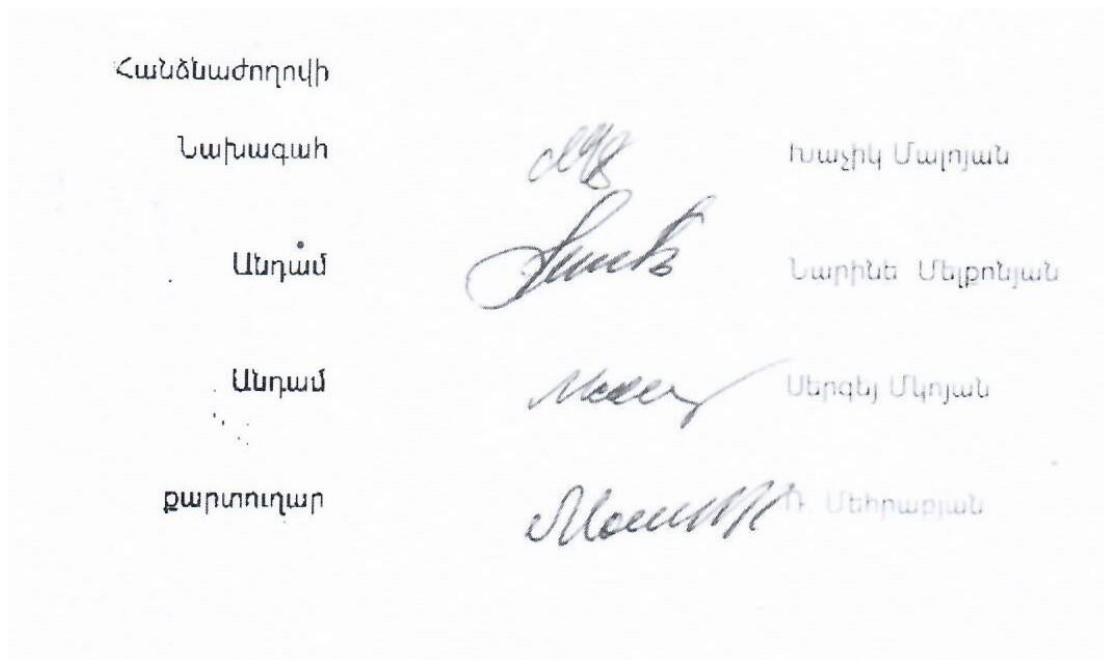 Հանձնաժողովի
Նախագահ Խաչիկ Մալոյան
Անդամ Նարինե Մելքոնյան
Անդամ Սերգեյ Մկոյան
քարտուղար Մեհրաբյան